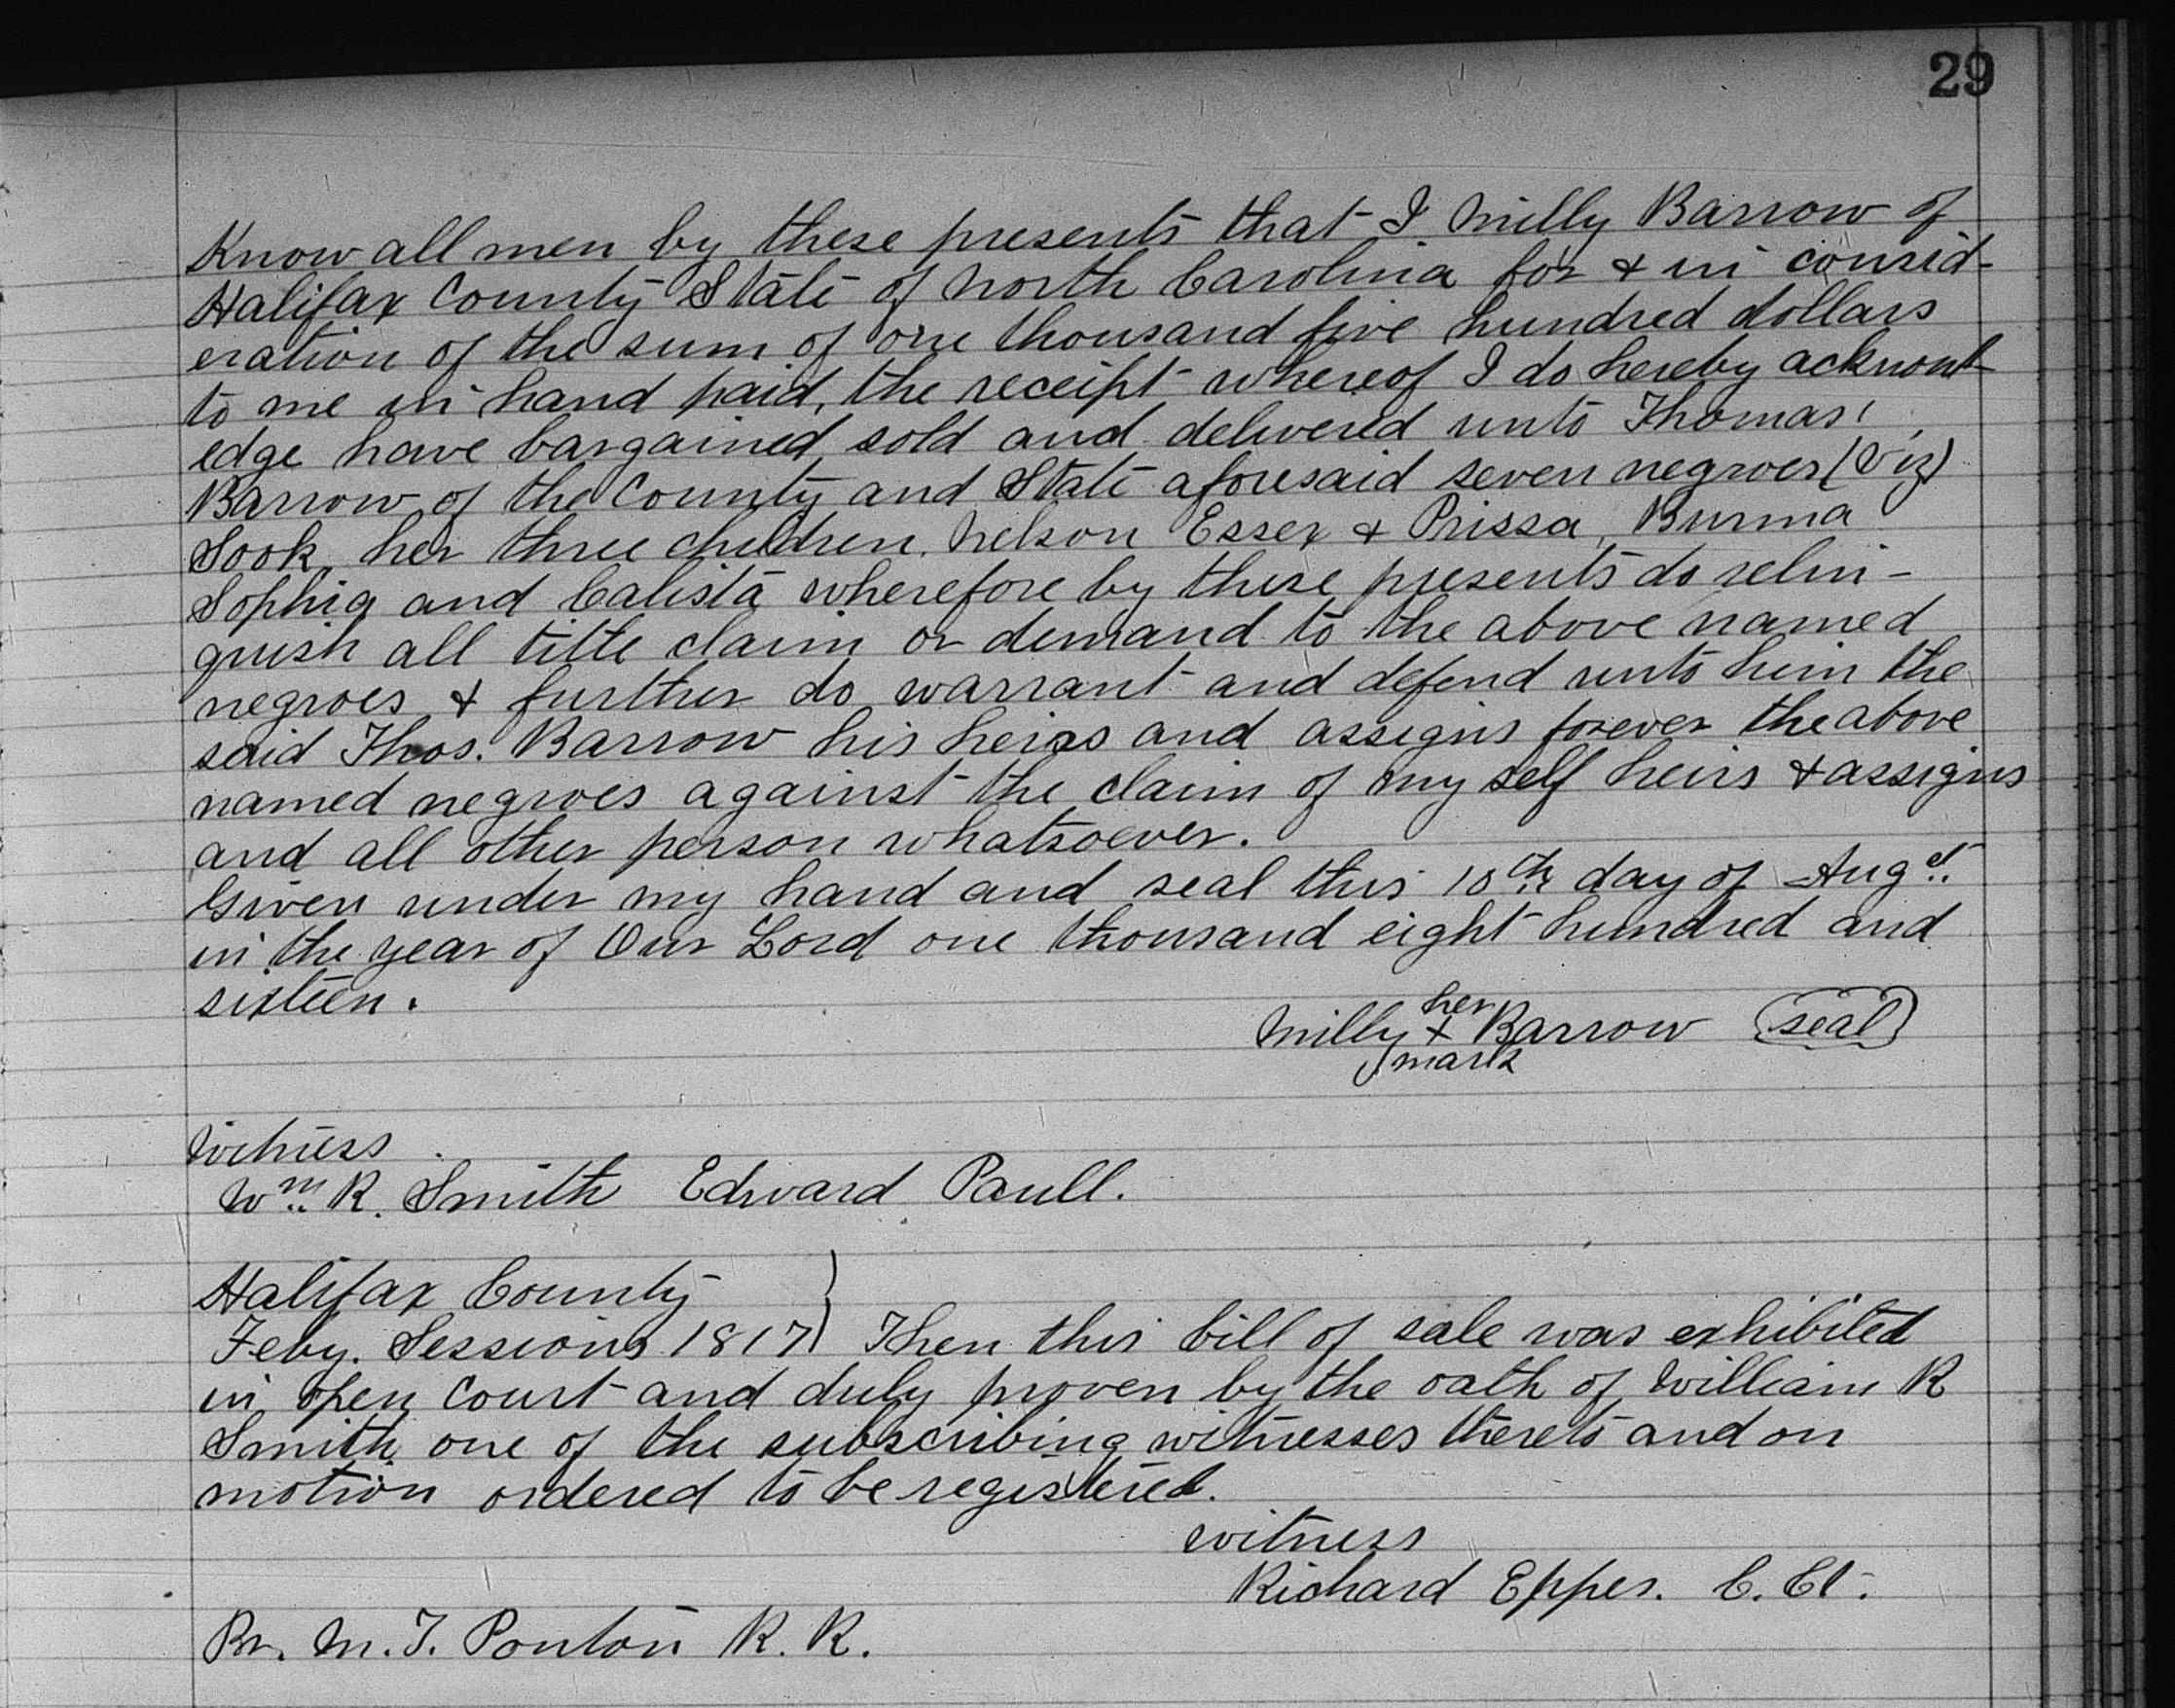 29
Know all men by these presents that I Milly Barrow of
Halifax County State of North Carolina for & in consid-
eration of the sum of one thousand five hundred dollars
to me in hand paid, the receipt whereof I do hereby acknowl-
edge have bargained, sold and delivered unto Thomas
Barrow of the County and State aforesaid seven negroes (Viz)
Sook, her three children. Nelson Essex & Prissa, Burma
Sophia and Calista wherefore by these presents do relin-
quish all title claim or demand to the above named
negroes & further do warrant and defend unto him the
said Thos. Barrow his heirs and assigns forever the above
named negroes against the claim of my self heirs & assigns
and all other person whatsoever.
Given under my hand and seal this 10th day of Augst.
in the year of Our Lord one thousand eight hundred and
sixteen.
her
Milly + Barrow (seal)
mark
Witness
Wm. R. Smith Edward Paull.
Halifax County }
Feby. Sessions 1817 } Then this bill of sale was exhibited
in open Court and duly proven by the oath of William R
Smith one of the subscribing witnesses thereto and on
motion ordered to be registered.
witness
Richard Eppes. C. Ct.
M. T. Ponton R. R.